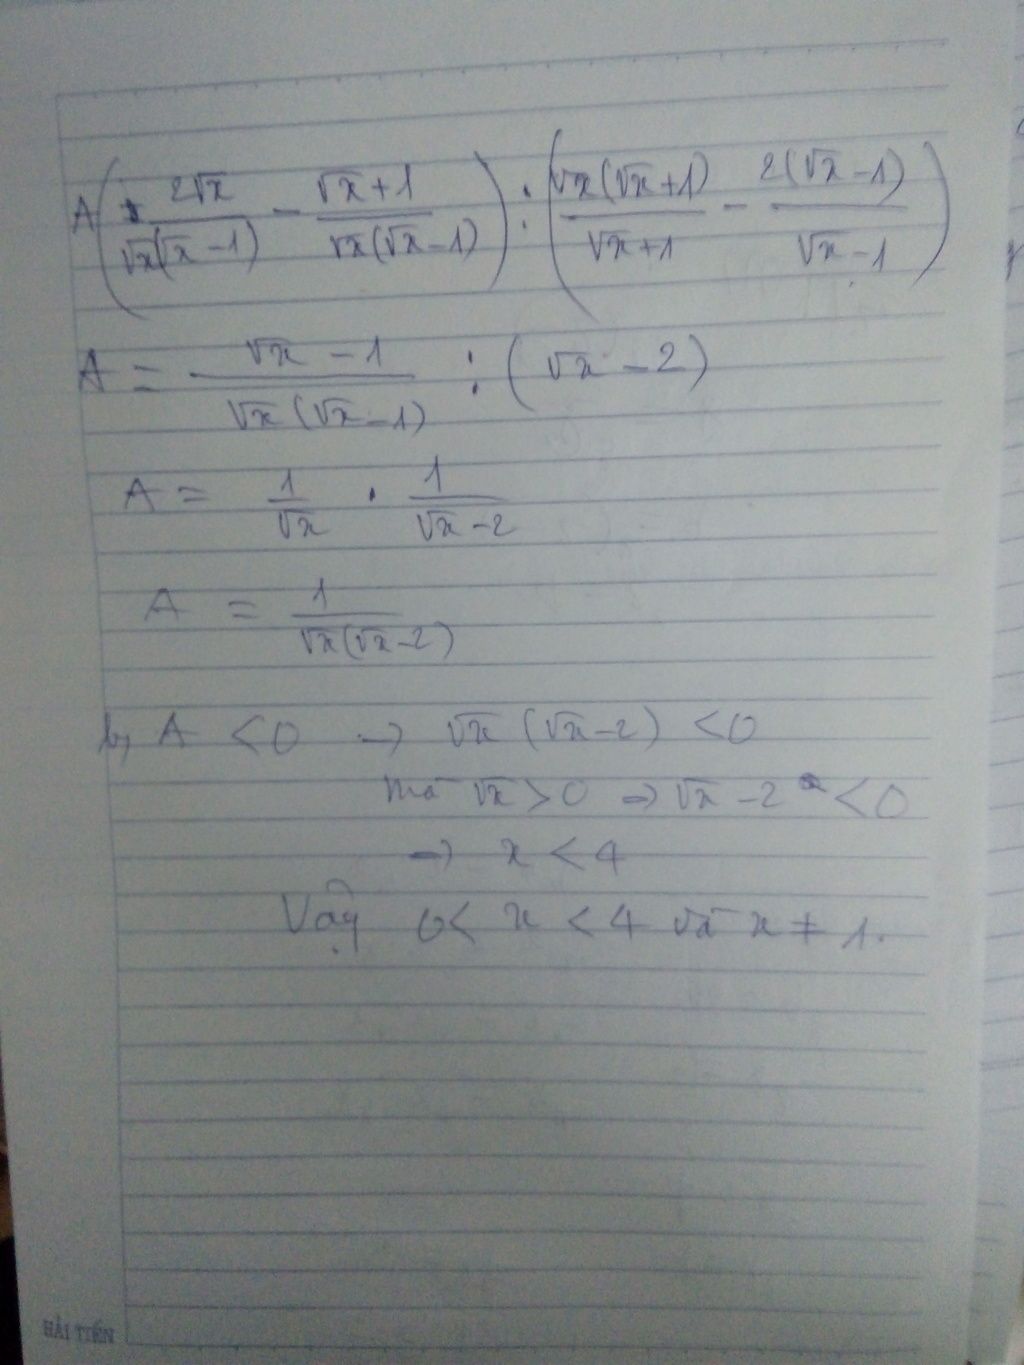 A ( 2√x / √x(√x - 1) - √x + 1 / √x(√x - 1) ) : ( √x(√x + 1) / √x + 1 - 2(√x - 1) / √x - 1 )
A = √x - 1 / √x(√x - 1) : (√x - 2)
A = 1 / √x . 1 / √x - 2
A = 1 / √x(√x - 2)
b, A < 0 → √x (√x - 2) < 0
mà √x > 0 ⇒ √x - 2 < 0
→ x < 4
Vậy 0 < x < 4 và x ≠ 1.
HẢI TIẾN